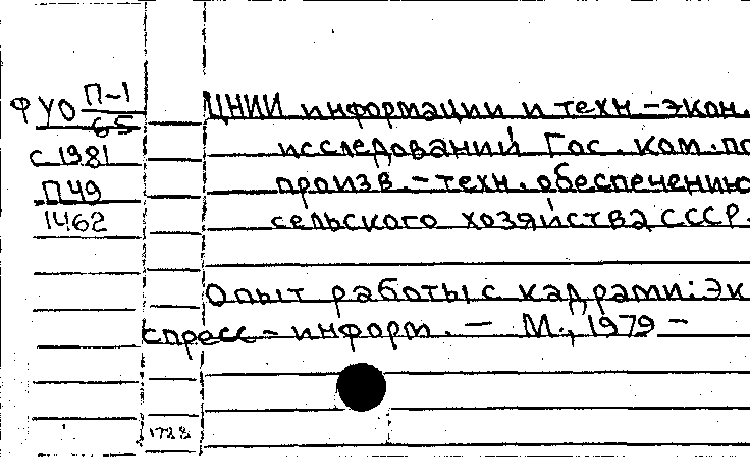 ФУО П-1
65
с 1981
П49
1462
ЦНИИ информации и техн-экон.
исследований Гос. ком. по
произв.-техн. обеспечению
сельского хозяйства СССР.
Опыт работы с кадрами: Эк
спресс-информ. - М., 1979 -